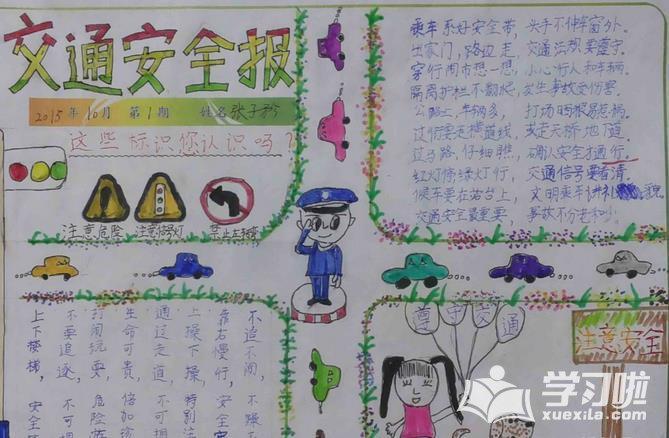 交通安全报
2015年10月 第1期 姓名张子矜
这些标识您认识吗?
注意危险 注意信号灯 禁止左转弯
乘车系好安全带,头手不伸车窗外。
出家门,路边走,交通法规要遵守。
穿行闹市想一想,小心行人和车辆。
隔离护栏不翻爬,发生事故受伤害。
公路上,车辆多,打场晒粮易惹祸。
过街要走横道线,或走天桥地下道。
过马路,仔细瞧,确认安全才通行。
红灯停绿灯行,交通信号要看清。
候车要在站台上,文明乘车讲礼貌
交通安全最重要,事故不分老和少。
不造不闹,不躁不
靠右慢行,安全
上操下操,特别注
通过走道,不可拥
生命可贵,倍加珍
打闹玩耍,危险
不要追逐,不可拥
上下楼梯,安全
遵守交通
注意安全
学习啦
xuexila.com